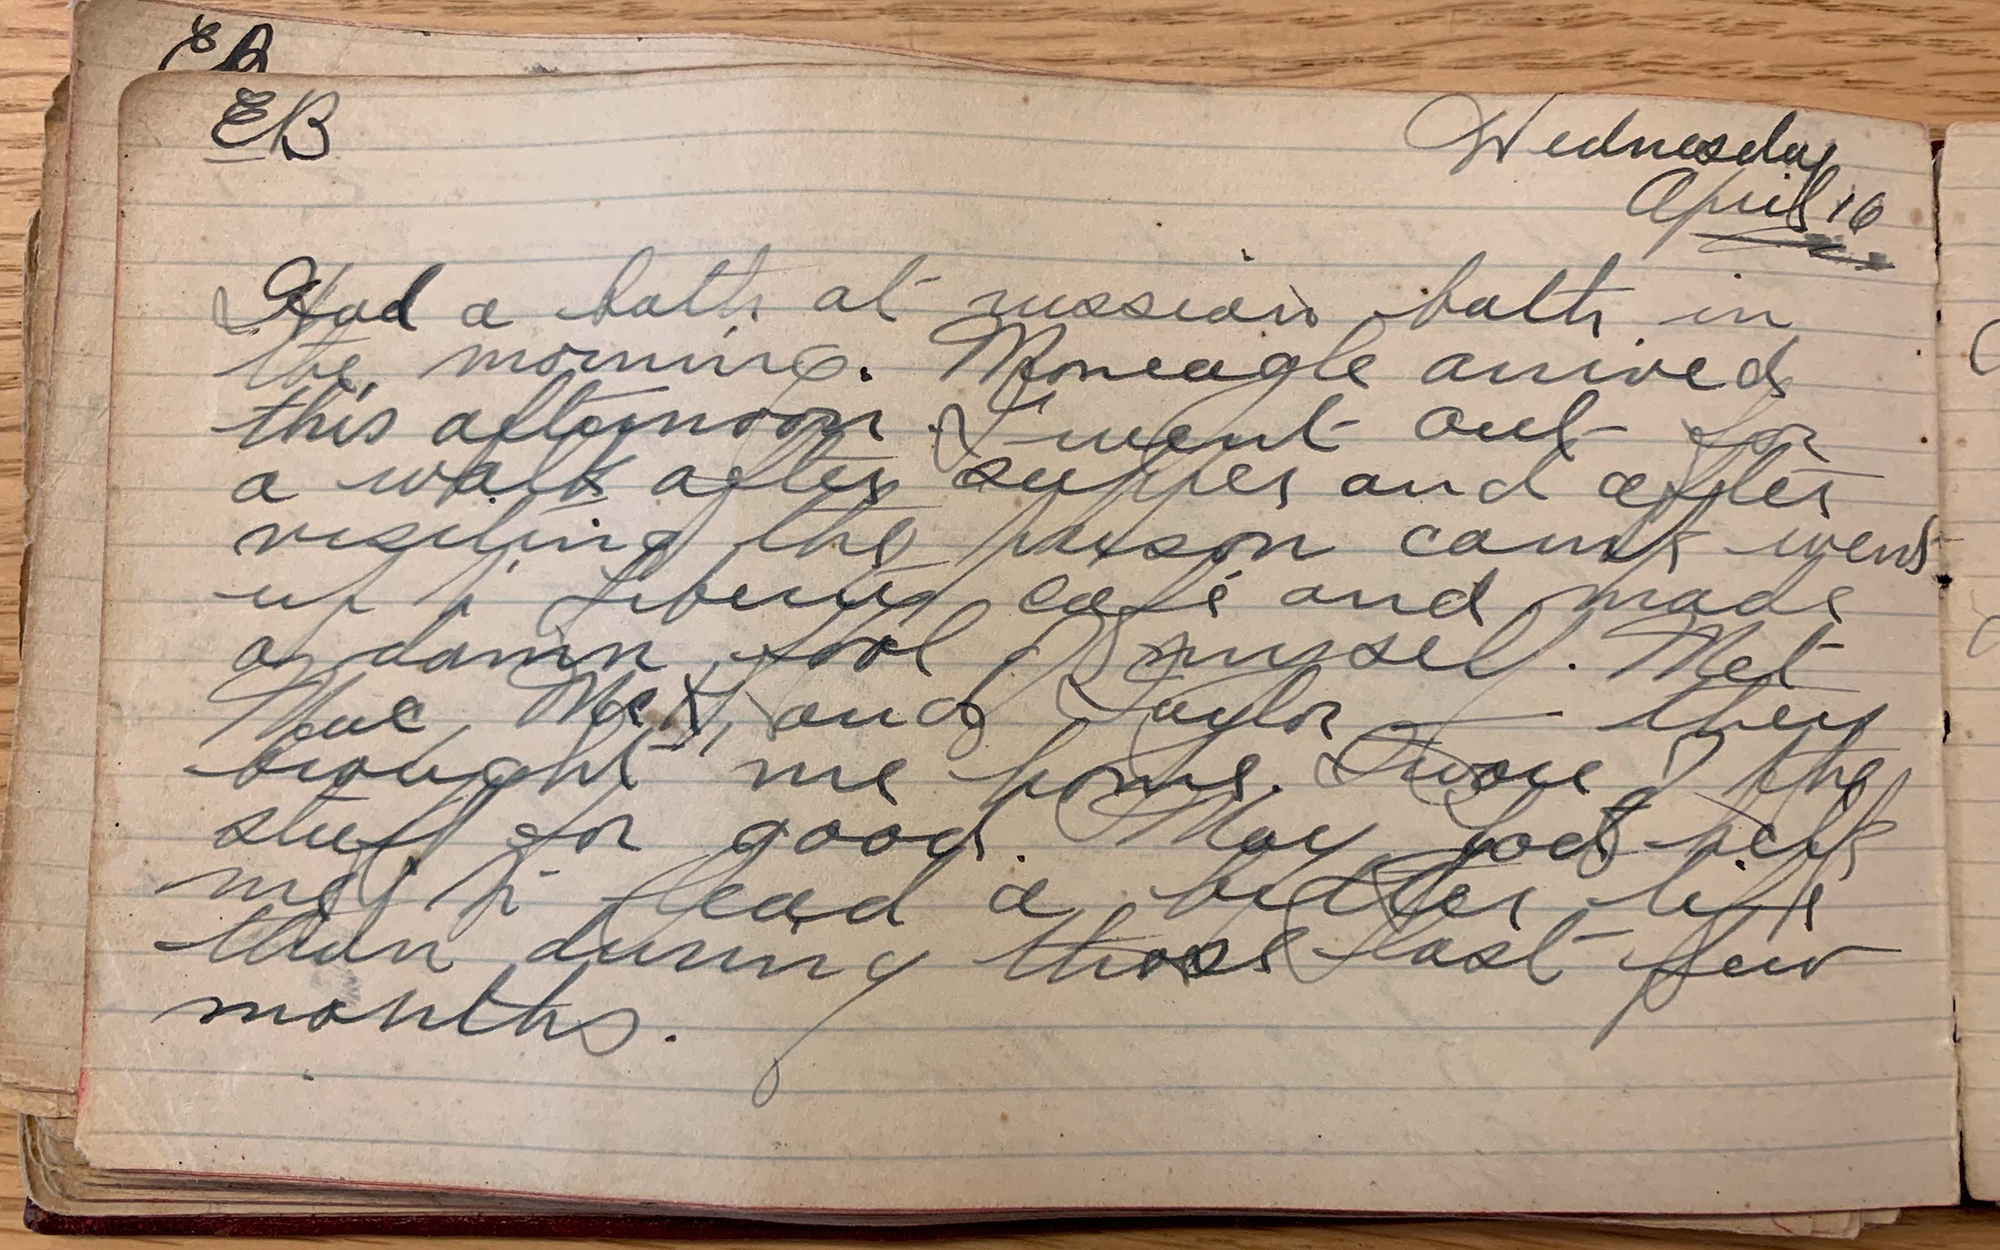 EB
EB
Wednesday
April 16
Had a bath at russian bath in
the morning. Moneagle arrived
this afternoon. I went out for
a walk after supper and after
visiting the prison camp went
up to Liberty café and made
a damn fool of myself. Met
Mac, and Taylor — they
brought me home. Swore off the
stuff for good. May god help
me to lead a better life
than during those last few
months.